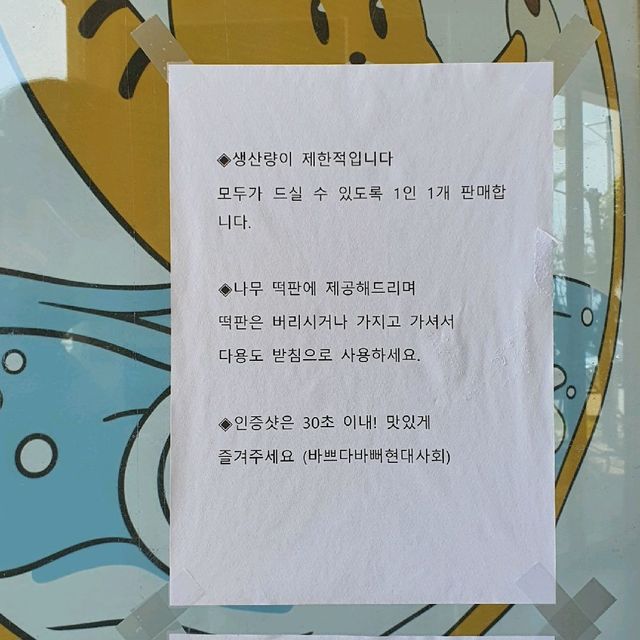 ◈생산량이 제한적입니다
모두가 드실 수 있도록 1인 1개 판매합
니다.
◈나무 떡판에 제공해드리며
떡판은 버리시거나 가지고 가셔서
다용도 받침으로 사용하세요.
◈인증샷은 30초 이내! 맛있게
즐겨주세요 (바쁘다바뻐현대사회)